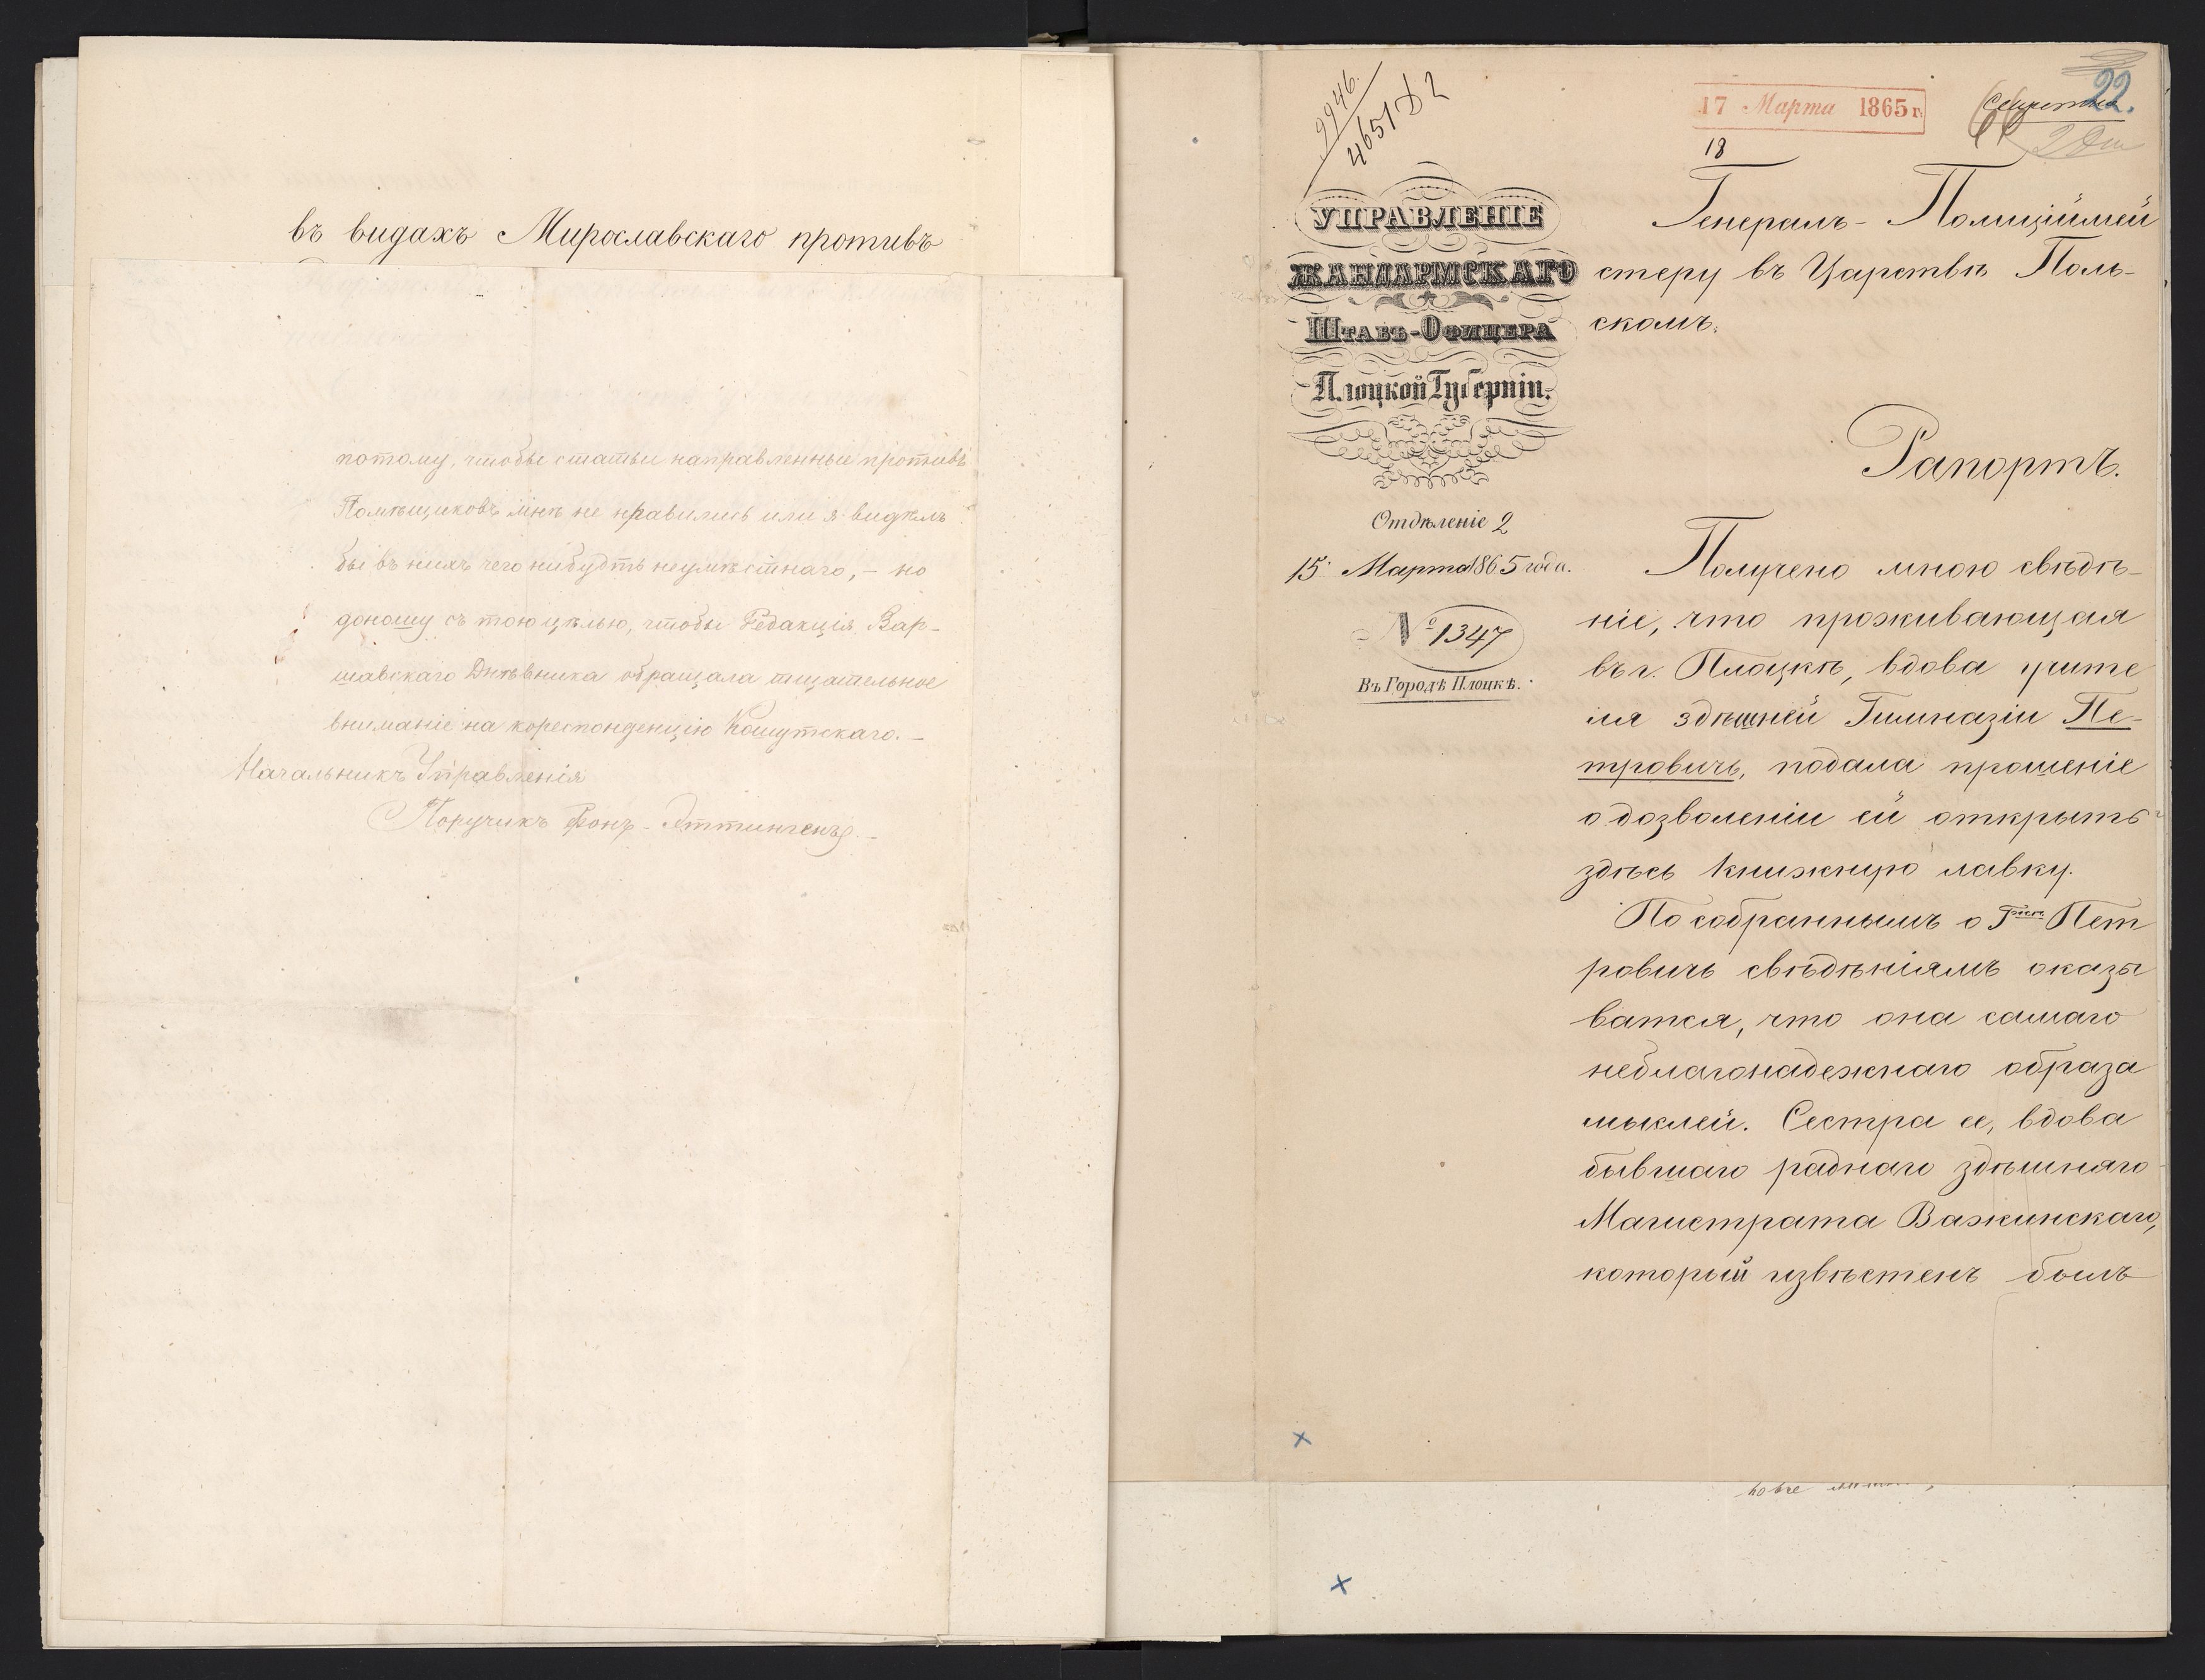 въ видахъ Мирославскаго противъ
потому, чтобы статьи направленные противъ
Помѣщиковъ мнѣ не нравились или я видѣлъ
бы въ нихъ чего нибудть неумѣстнаго, – но
доношу съ тою цѣлью, чтобы Редакція Вар-
шавскаго Днѣвника обращала тщательное
вниманіе на кореспонденцію Кошутскаго. –
Начальникъ Управленія
Поручикъ Фонъ-Эттингенъ. –
9946.
4651 D2
17 Марта 1865 г.
22.
Секретно
18
УПРАВЛЕНІЕ
ЖАНДАРМСКАГО
Штабъ-Офицера
Плоцкой Губерніи.
Отдѣленіе 2
15 Марта 1865 года.
№ 1347
Въ Городѣ Плоцкѣ.
Генералъ-Полиціймей
стеру въ Царствѣ Поль-
скомъ.
Рапортъ.
Получено мною свѣдѣ-
ніе, что проживающая
въ г. Плоцкѣ, вдова учите
ля здѣшней Гимназіи Пе-
тровичъ, подала прошеніе
о дозволеніи ей открыть
здѣсь книжную лавку.
По собраннымъ о Гжѣ Пет
ровичъ свѣдѣніямъ оказы
вается, что она самаго
неблагонадежнаго образа
мыслей. Сестра ее, вдова
бывшаго раднаго здѣшняго
Магистрата Важинскаго,
который извѣстенъ былъ